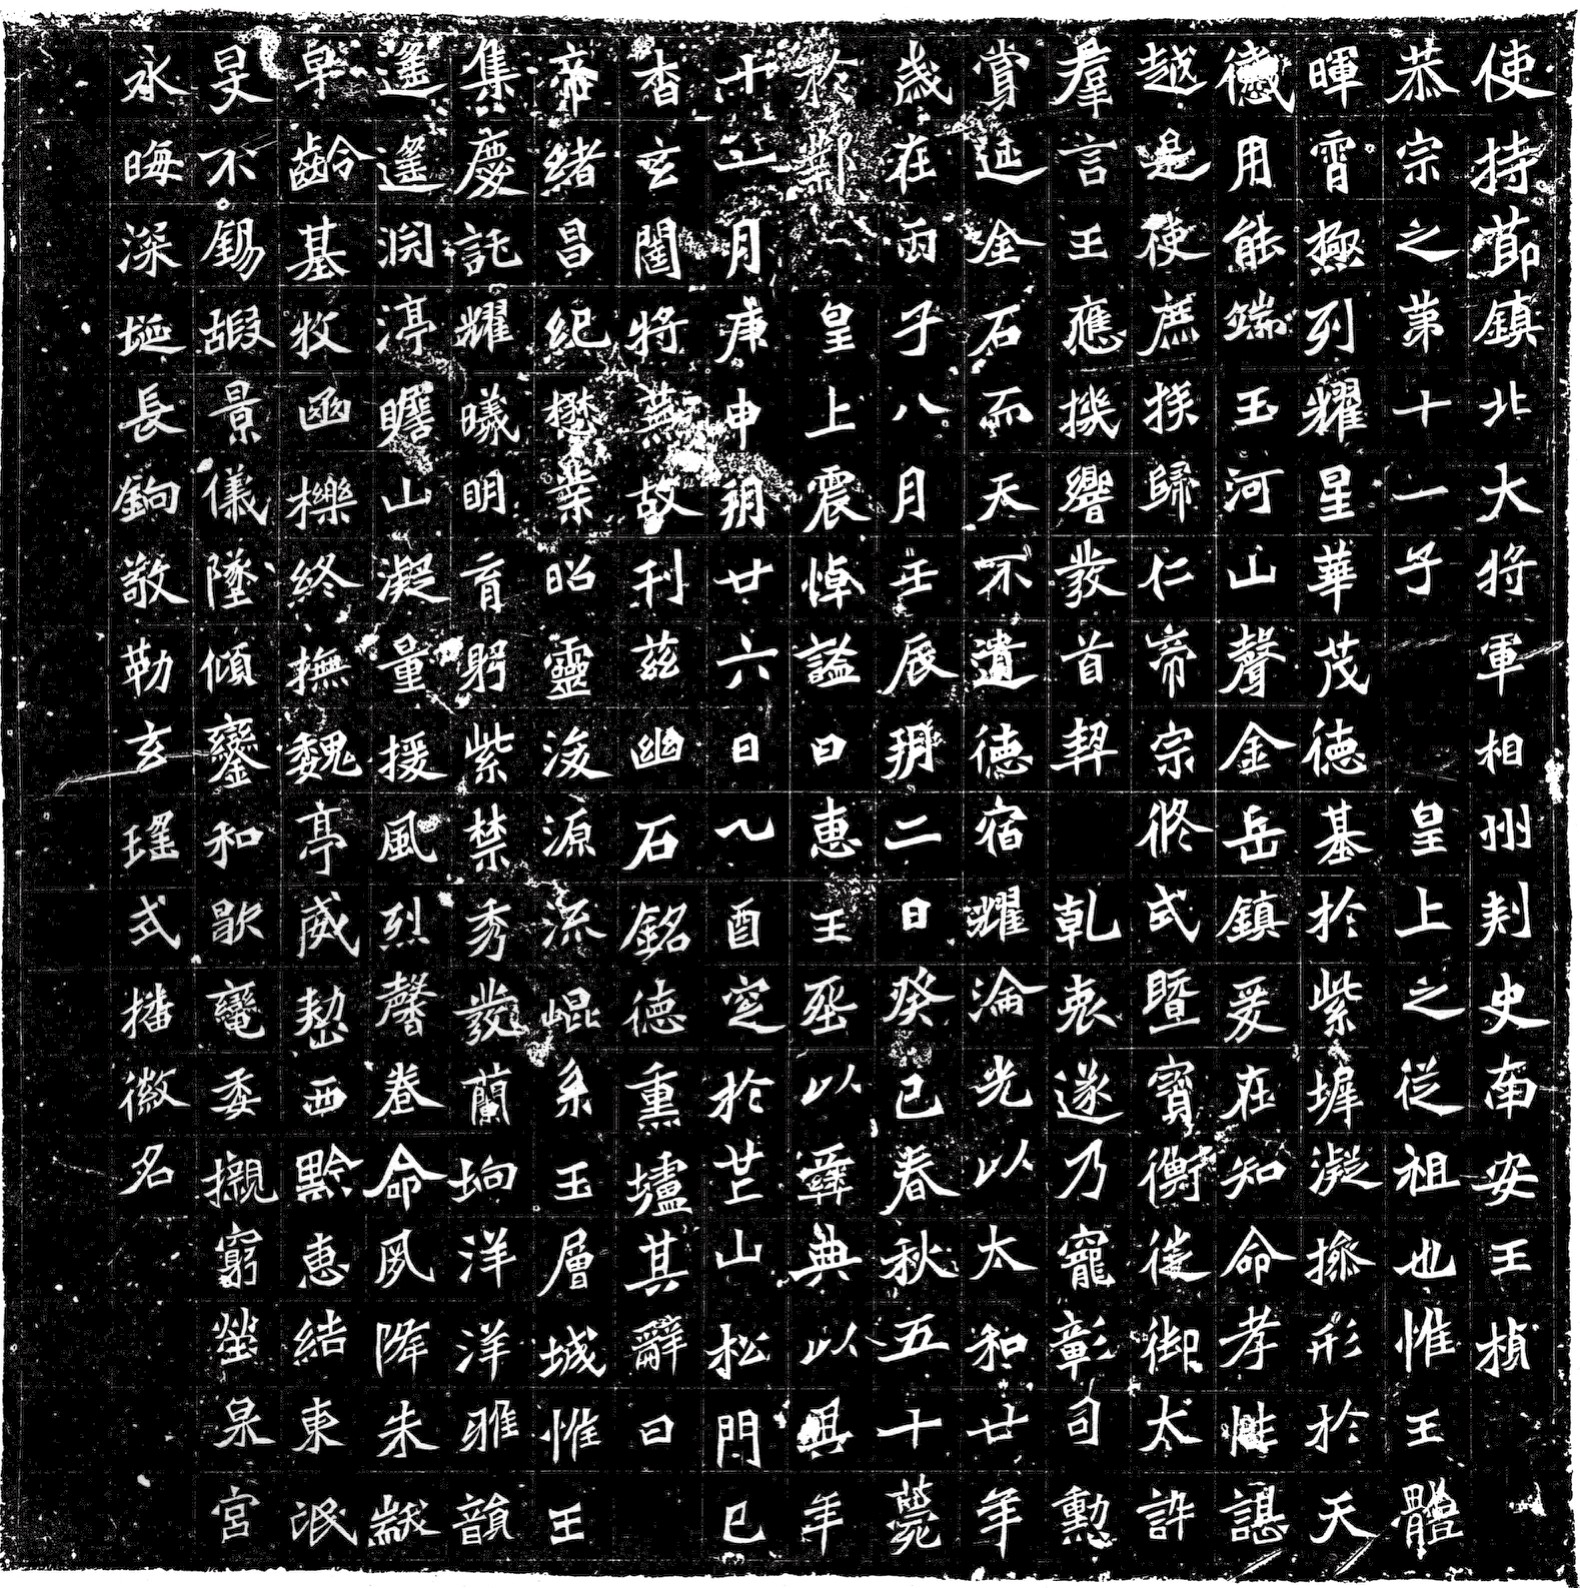 使持節鎮北大將軍相州刾史南安王楨
恭宗之第十一子皇上之從祖也惟王體
暉霄極列耀星華茂德基於紫墀凝操形於天
德用能端玉河山聲金岳鎮爰在知命孝性諶
越是使庶族歸仁帝宗攸式暨寶衡徙御太許
羣言王應機響發首契乾衷遂乃寵彰司勳
賞延金石而天不遺德宿耀淪光以太和廿年
歲在丙子八月壬辰朔二日癸巳春秋五十薨
於鄴皇上震悼謚曰惠王葬以彝典以其年
十一月庚申朔廿六日乙酉窆於芒山松門已
杳玄闥將蕪故刊茲幽石銘德熏壚其辭曰
帝緒昌紀懋業昭靈浚源流崐系玉層城惟王
集慶託耀曦明育躬紫禁秀發蘭坰洋洋雅韻
遙遙淵渟瞻山凝量援風烈馨卷命夙降朱黻
早齡基牧函櫟終撫魏亭威懃西黔惠結東氓
旻不錫嘏景儀墜傾鑾和歇轙委櫬窮塋泉宮
永晦深埏長鉤敬勒玄瑤式播徽名